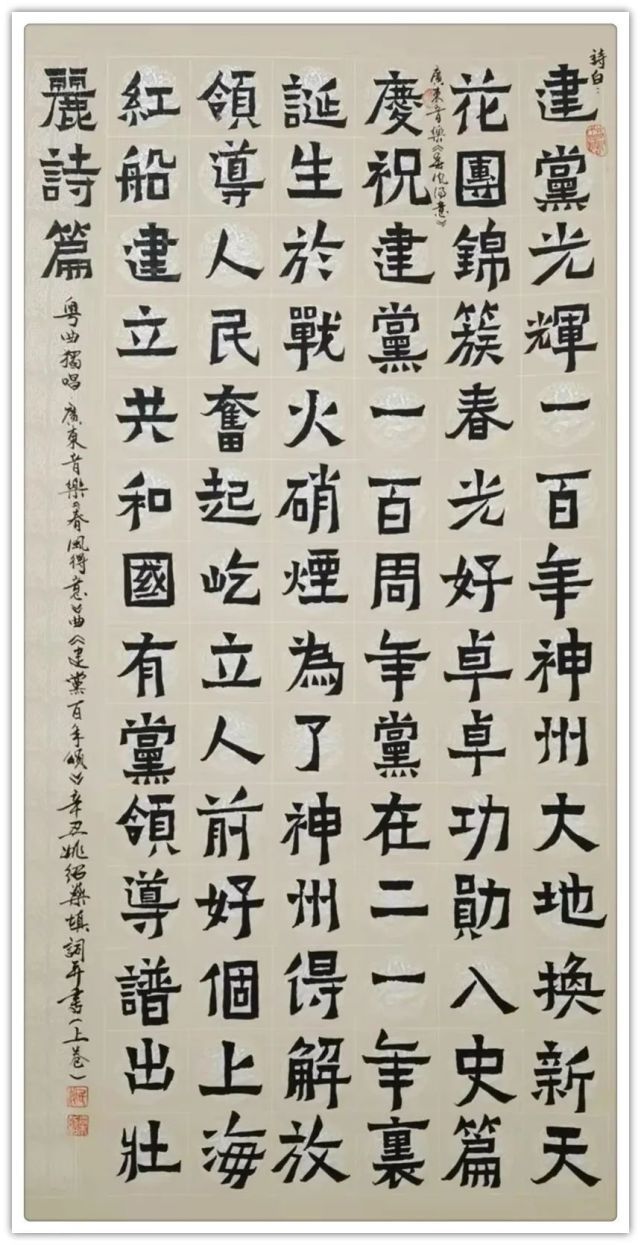 詩白：
建黨光輝一百年神州大地換新天
花團錦簇春光好卓卓功勛入史篇
廣東音樂《春風得意》
慶祝建黨一百周年黨在二一年裏
誕生於戰火硝煙為了神州得解放
領導人民奮起屹立人前好個上海
紅船建立共和國有黨領導譜出壯
麗詩篇
粵曲獨唱 廣東音樂《春風得意》曲《建黨百年頌》辛丑姚紹榮填詞並書（上卷）